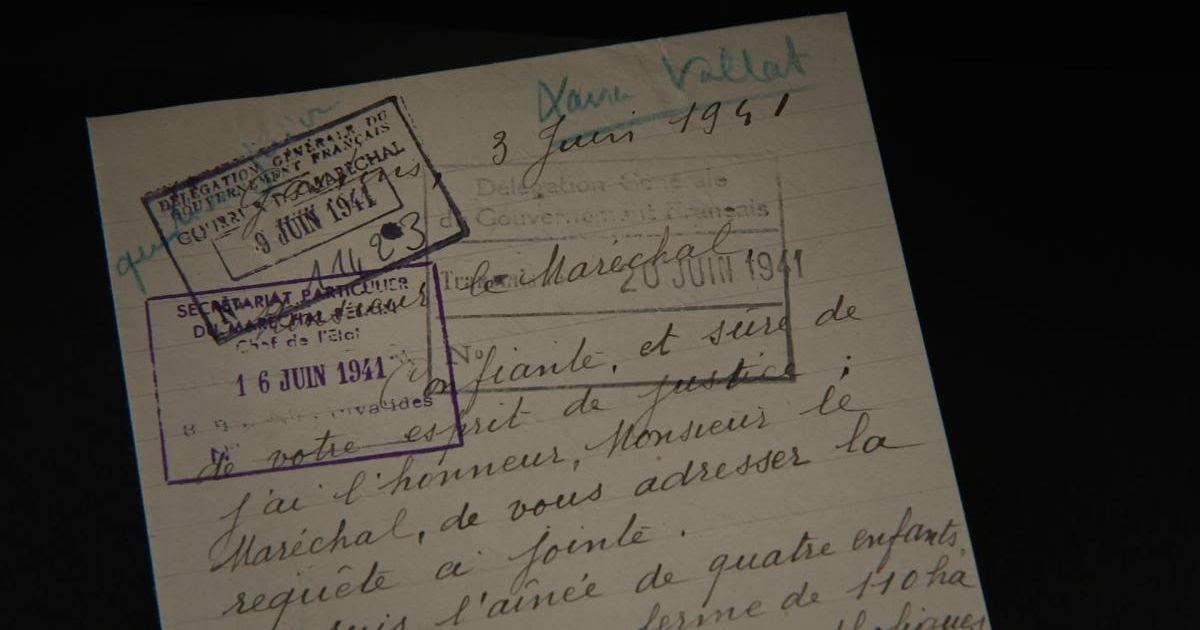 Xavier Vallat
3 Juin 1941
DÉLÉGATION GÉNÉRALE DU
GOUVERNEMENT FRANÇAIS
DU MARÉCHAL
9 JUIN 1941
11423
Délégation Générale
du Gouvernement Français
Transmis 20 JUIN 1941
No
SECRÉTARIAT PARTICULIER
DU MARÉCHAL PÉTAIN
Chef de l'Etat
16 JUIN 1941
Invalides
N°
Monsieur le Maréchal,
Confiante, et sûre de
de votre esprit de justice ;
j'ai l'honneur, Monsieur le
Maréchal, de vous adresser la
requête ci jointe.
suis l'aînée de quatre enfants,
ferme de 110 ha